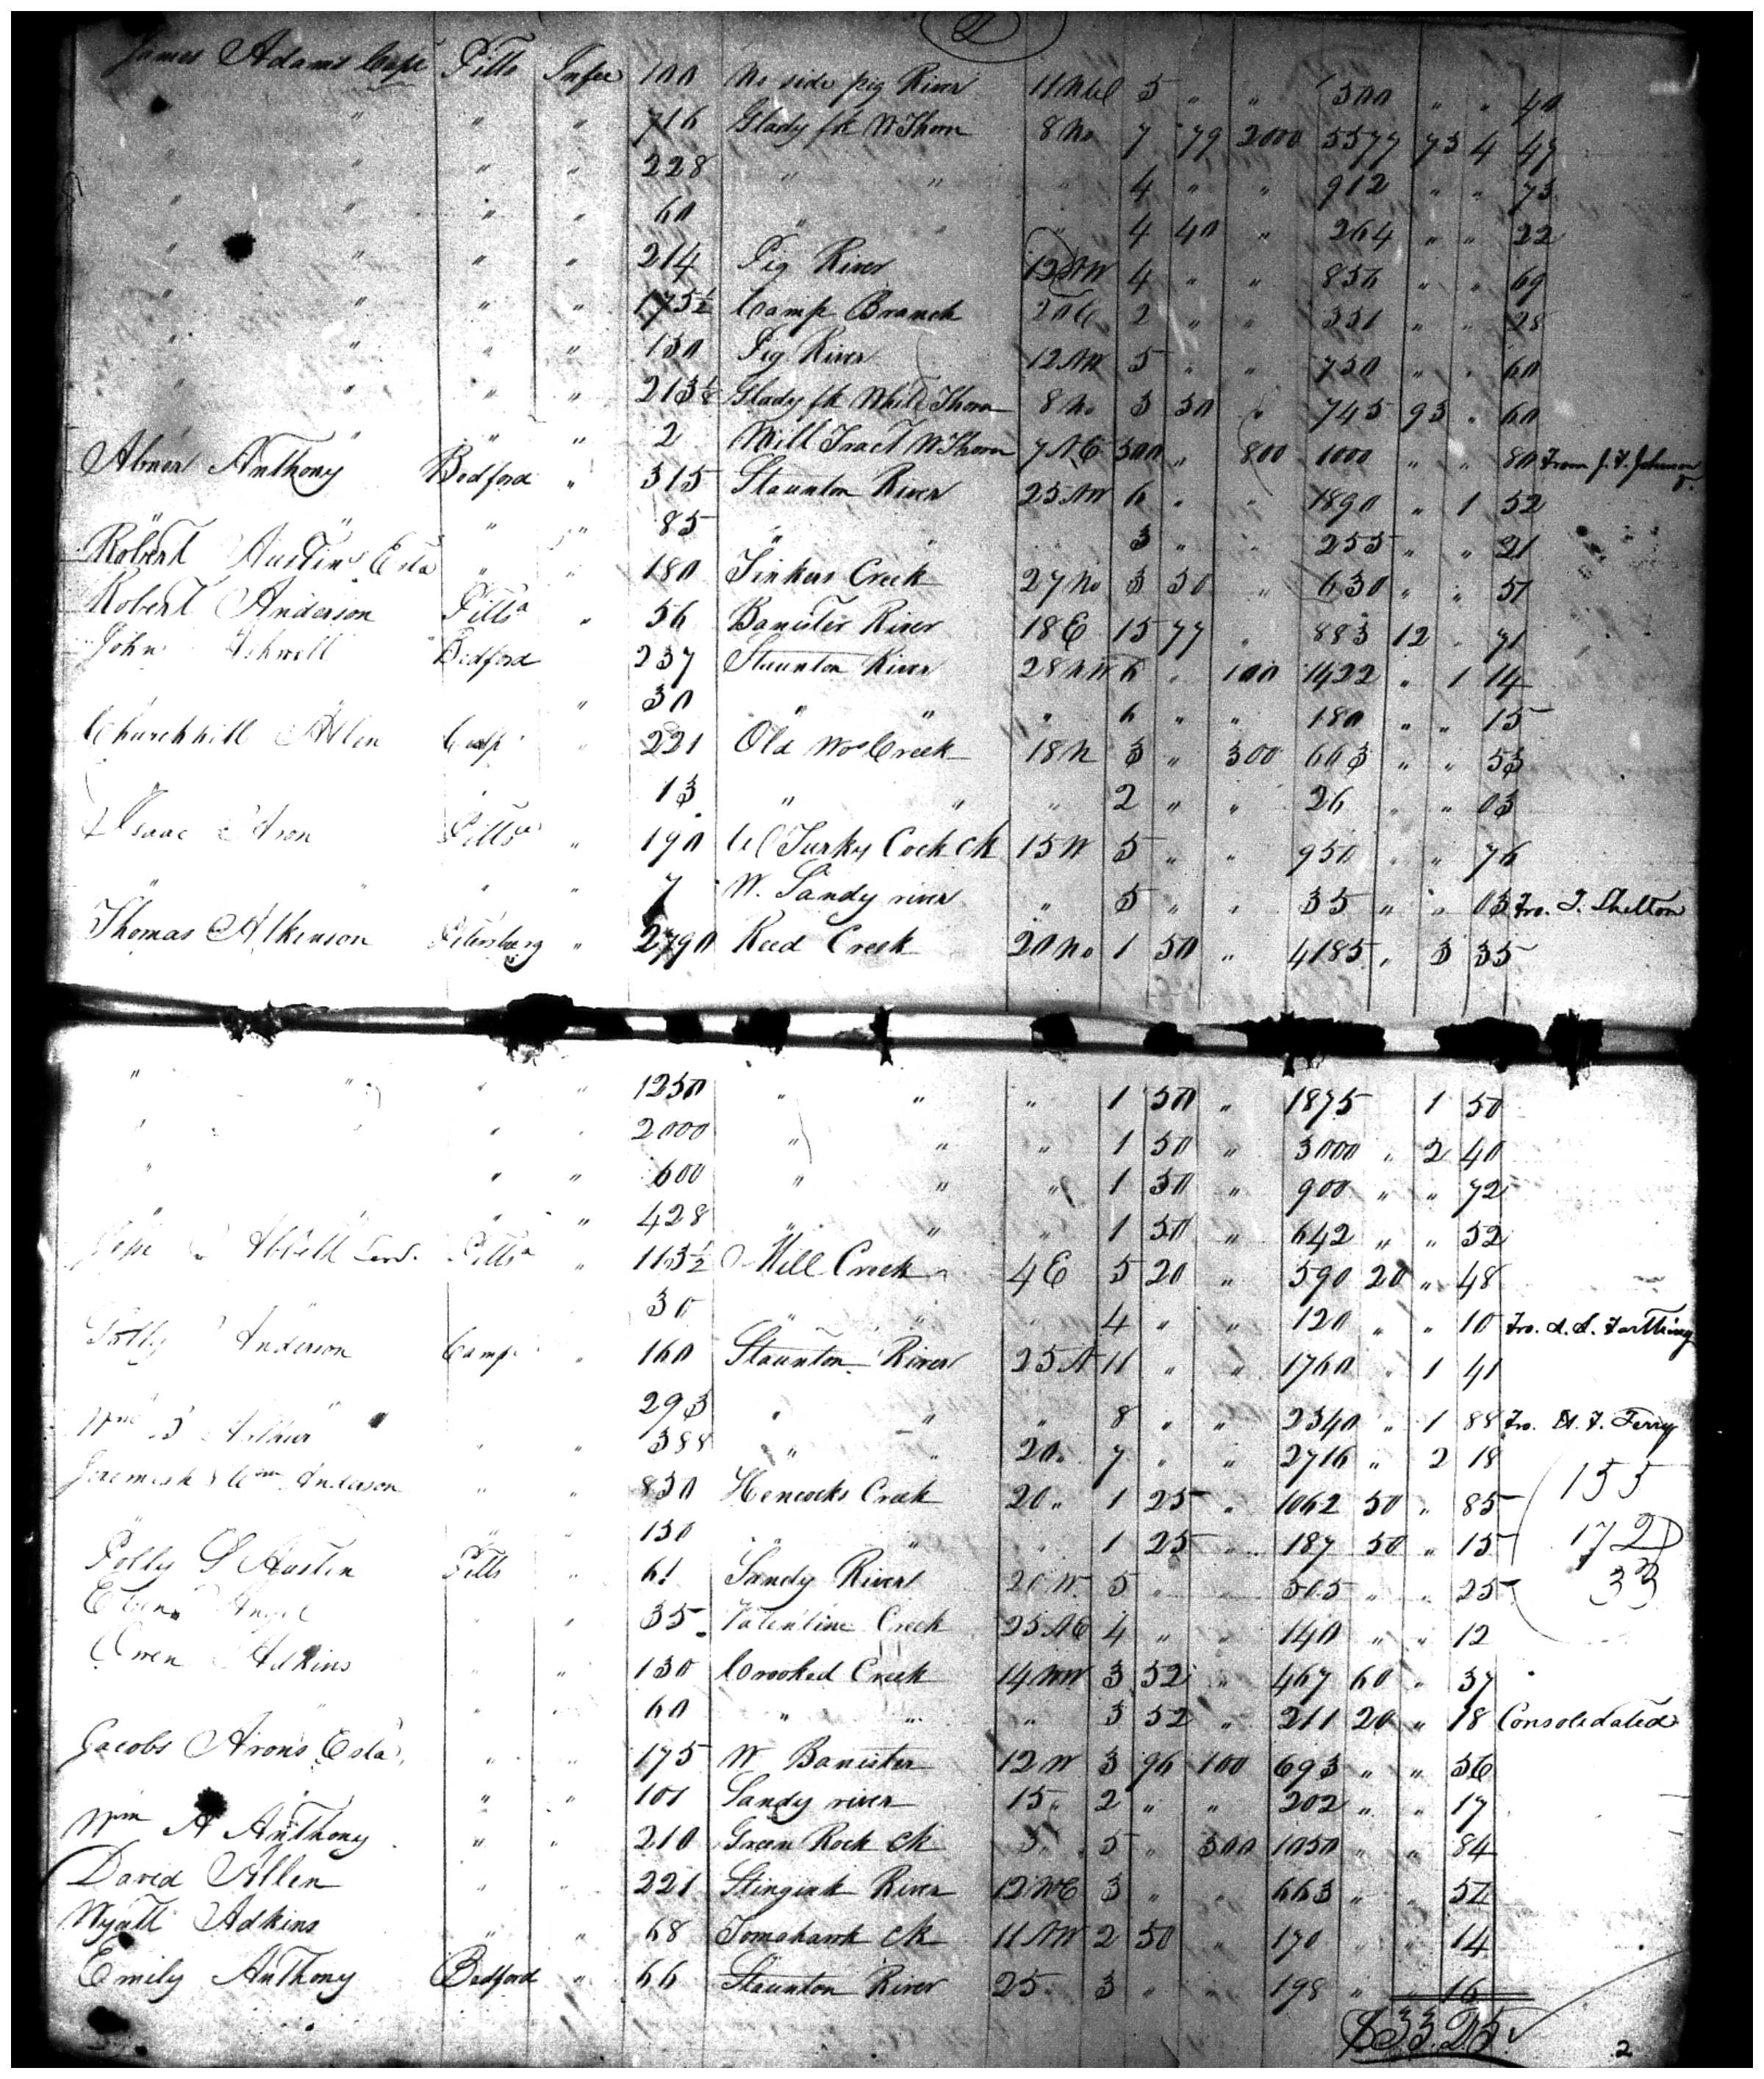 2
James Adams Capt Pitts Infee 100 No side pig River 11 NW 5 " " 500 " " 40
" " " " 716 Glady fk W Thorn 8 No 7 79 2000 5577 73 4 47
" " " " 228 " " " 4 " " 912 " " 73
" " " " 60 " " " 4 40 " 264 " " 22
" " " " 214 Pig River 12 NW 4 " " 856 " " 69
" " " " 175½ Camp Branch 2 " " 351 " " 28
" " " " 150 Pig River 12 NW 5 " " 750 " " 60
" " " " 213⅛ Glady fk White Thorn 8 No 3 50 " 745 93 " 60
" " " " 2 Mill Tract W Thorn 7 NE 500 " 800 1000 " " 80 From J. F. Johnson
Abner Anthony Bedford " 315 Staunton River 25 NW 6 " " 1890 " 1 52
" " " " 85 " " " 3 " " 255 " " 21
Robert Austins Esta " " 180 Tinkers Creek 27 No 3 50 " 630 " " 51
Robert Anderson Pitts " 56 Banister River 18 E 15 77 " 883 12 " 71
John Ashwell Bedford 237 Staunton River 28 NW 6 " 100 1422 " 1 14
" 30 " " " 6 " " 180 " " 15
Churchhill Allen Camp " 221 Old Wos Creek 18 N 3 " 300 663 " " 53
" 13 " " " 2 " " 26 " " 03
Isaac Aron Pitts " 190 Turky Cock ck 15 W 5 " " 950 " " 76
" " " " 7 W. Sandy river " 5 " " 35 " " 03 Fro. T. Shelton
Thomas Atkinson Petersburg " 2790 Reed Creek 20 No 1 50 " 4185 " 3 35
" " " " 1250 " " " 1 50 " 1875 1 50
" " " " 2000 " " " 1 50 " 3000 " 2 40
" " " 600 " " " 1 50 " 900 " " 72
" " " 428 " " " 1 50 " 642 " " 52
Abbott Pitts " 113½ Mill Creek 4 E 5 20 " 590 20 " 48
30 " " " 4 " " 120 " " 10 Fro. A. A. Farthing
Anderson Camp " 160 Staunton River 25 N 11 " " 1760 " 1 41
293 " " " 8 " " 2340 " 1 88 Fro. N. F. Terry
Wm Arthur " " 388 " " 20 " 7 " " 2716 " 2 18
Jeremiah & Wm Anderson " " 850 Hencocks Creek 20 " 1 25 " 1062 50 " 85
" " 150 " " " 1 25 " 187 50 " 15
155
172
33
Polly G Austin Pitts " 61 Sandy River 20 W 5 " " 305 " " 25
Angel " " 35 Valentine Creek 25 NE 4 " " 140 " " 12
Owen Adkins " " 130 Crooked Creek 14 NW 3 52 " 467 60 " 37
" " 60 " " " 3 52 " 211 20 " 18 Consolidated
Jacobs Arons Esta " " 175 W Banister 12 W 3 96 100 693 " " 56
" " " " 101 Sandy river 15 " 2 " " 202 " " 17
Wm A Anthony " " 210 Green Rock ck 5 " 5 " 300 1050 " " 84
David Allen " " 221 Stingink River 12 NE 3 " " 663 " " 54
Wyatt Adkins " " 68 Tomahawk ck 11 NW 2 50 " 170 " " 14
Emily Anthony Bedford " 66 Staunton River 25 " 3 " " 198 " " 16
$33.25
2